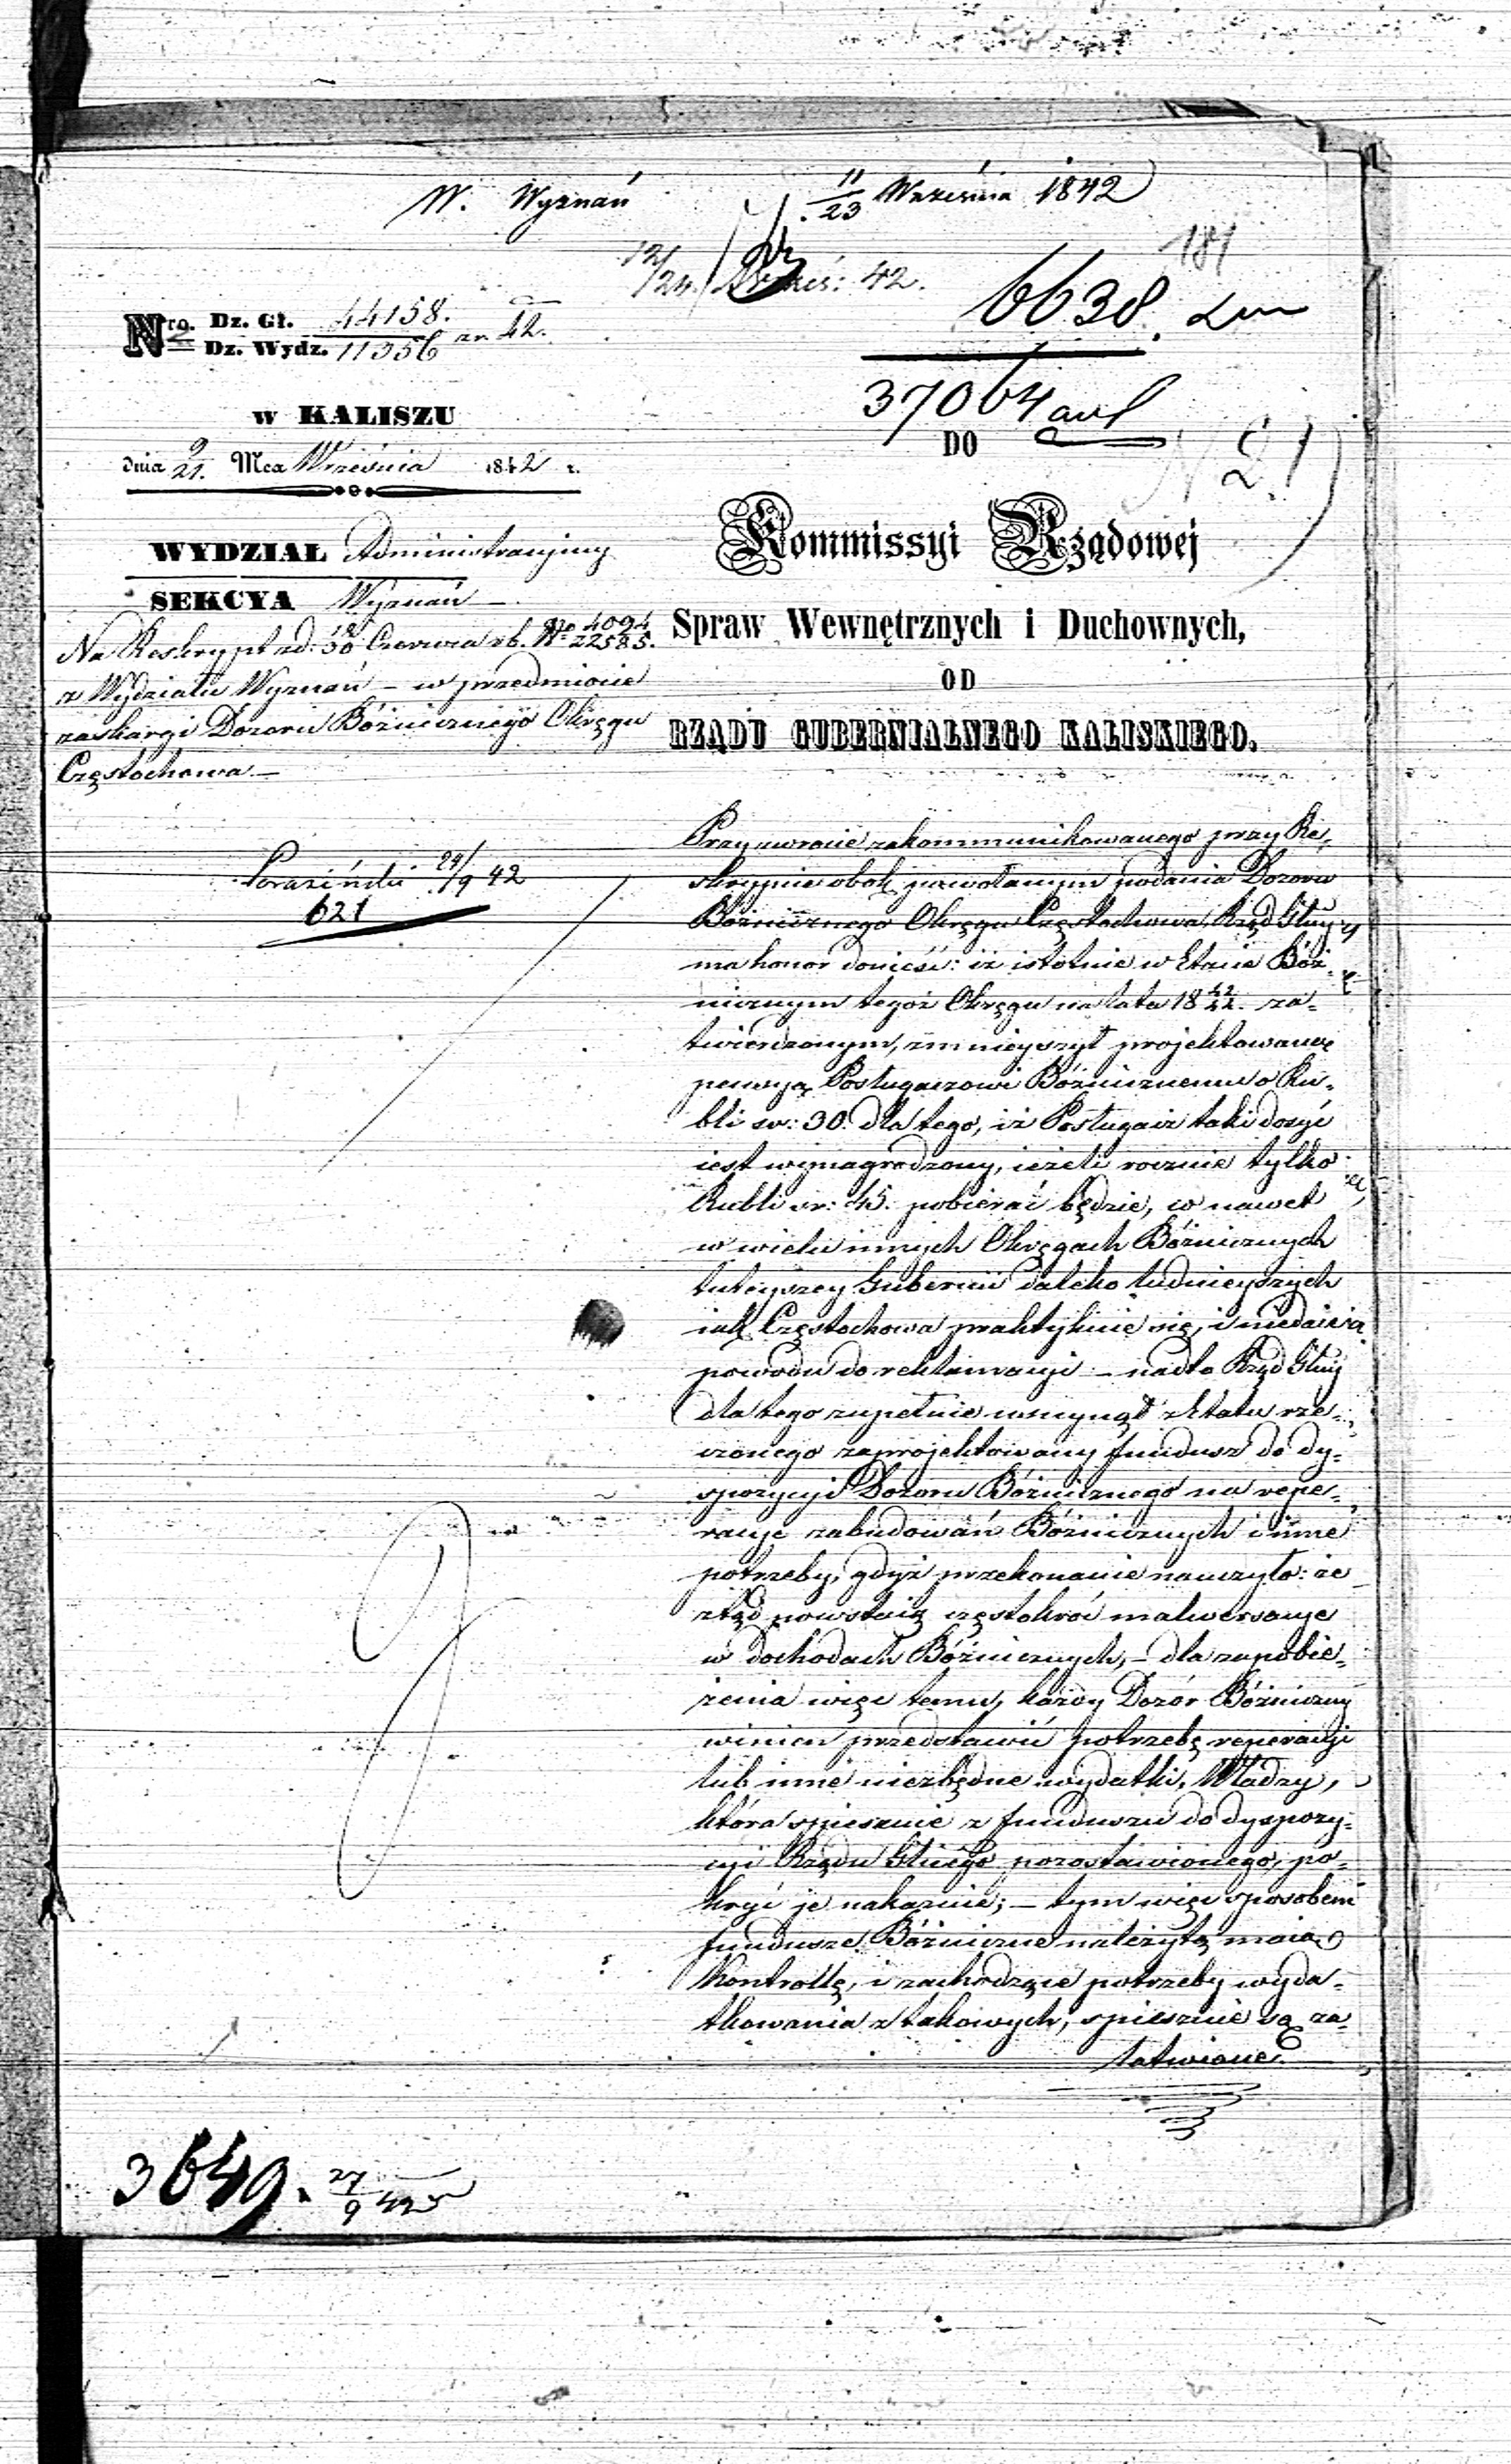 W. Wyznań
11/23 Września 1842
12/24 Wrześ: 42.
187
6638.
37064
Nro. Dz. Gł. 44158.
Dz. Wydz. 11356 zr. 42.
w KALISZU
dnia 9/21. Mca Września 1842 r.
WYDZIAŁ Administracyiny
SEKCYA Wyznań
Na Reskrypt z d. 18/30 Czerwca r b. No 4094/22585.
z Wydziału Wyznań – w przedmiocie
zaskargi Dozoru Bóżnicznego Okręgu
Częstochowa –
24/9 42
621
DO
N 21
Kommissyi Rządowej
Spraw Wewnętrznych i Duchownych,
OD
RZĄDU GUBERNIALNEGO KALISKIEGO.
Przy zwrocie zakommunikowanego przy Re,
skrypcie obok powołanym podania Dozoru
Bóżnicznego Okręgu Częstochowa, Rząd Gluy
ma honor donieść: iż istotnie w Etacie Bóż-
nicznym tegoż Okręgu na lata 18 42/44. za-
twierdzonym, zmnieyszył projektowaną
pensyą Posługaczowi Bóżnicznemu o Ru-
bli sr: 30. dla tego, iż Posługacz taki dosyć
iest wynagrodzony, ieżeli rocznie tylko
Rubli sr: 45. pobierać będzie, co nawet
w wielu innych Okręgach Bóżnicznych
tuteyszey Gubernii daleko ludnieyszych
iak Częstochowa praktykuie się, i niedaie
powodu do reklamacyi – nadto Rząd Gluy
dla tego zupełnie usunął z Etatu rze-
czonego zaprojektowany fundusz do dy-
spozycyi Dozoru Bóżnicznego na repe-
racye zabudowań Bóżnicznych i inne
potrzeby, gdyż przekonanie nauczyło: że
ztąd powstaią częstokroć malwersacye
w dochodach Bóżnicznych, – dla zapobie-
żenia więc temu, każdy Dozór Bóżniczny
winien przedstawić potrzebę reperacyi
lub inne niezbędne wydatki, Władzy,
która spiesznie z funduszu do dyspozy-
cyi Rządu Gluego pozostawionego, po-
kryć je nakazuie; – tym więc sposobem
fundusze Bóżniczne należytą maią
Kontrollę, i zachodzące potrzeby wyda-
tkowania z takowych, spiesznie są za-
łatwione.
3649. 27/9 42